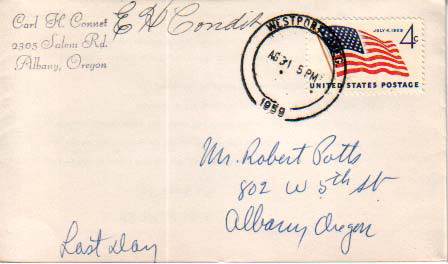 Carl H Connet
2305 Salem Rd.
Albany, Oregon
E H Condit
WESTPORT
AG 31 5 PM
1959
JULY 4, 1959
4c
UNITED STATES POSTAGE
Mr. Robert Potts
802 W 5th St
Albany Oregon
Last Day